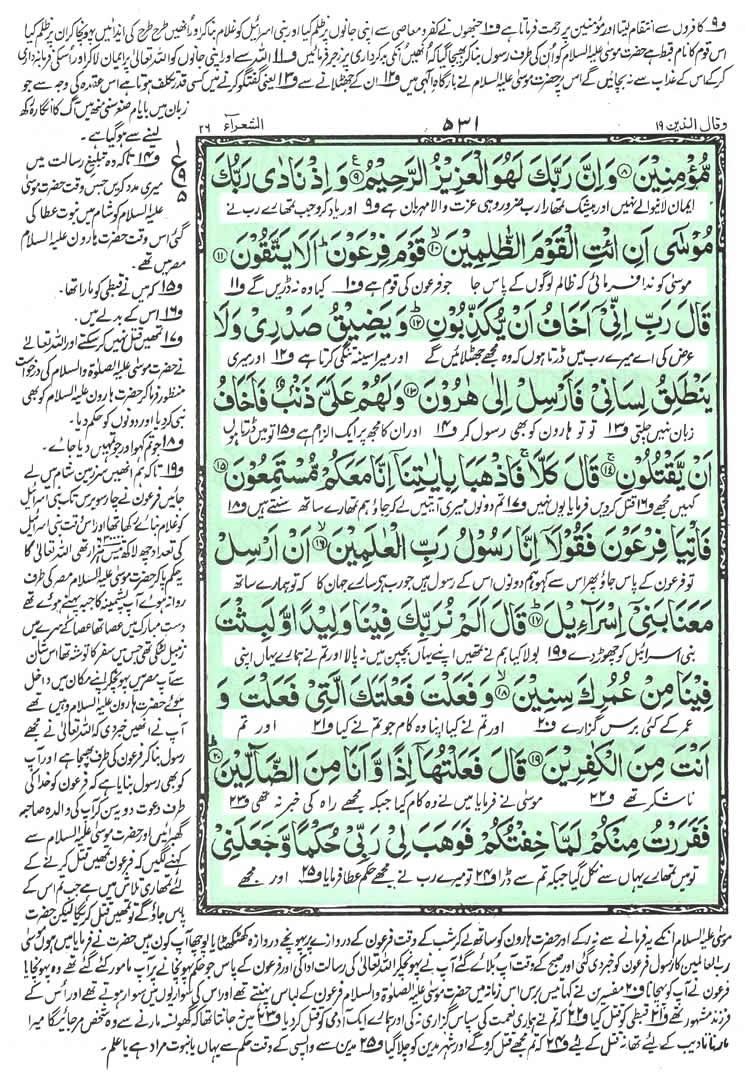 و۹ کافروں سے انتقام لیتا اور مؤمنین پر رحمت فرماتا ہے و۱۰ جنھوں نے کفر و معاصی سے اپنی جانوں پر ظلم کیا اور بنی اسرائیل کو غلام بنا کر اور انھیں طرح طرح کی ایذائیں پہونچا کر ان پر ظلم کیا
اس قوم کا نام قبط ہے حضرت موسیٰ علیہ السلام کو ان کی طرف رسول بنا کر بھیجا گیا کہ انھیں انکی بدکرداری پر زجر فرمائیں و۱۱ اللہ سے اور اپنی جانوں کو اللہ تعالیٰ پر ایمان لا کر اور اسکی فرمانبرداری
کرکے اس کے عذاب سے نہ بچائیں گے اس پر حضرت موسیٰ علیہ السلام نے بارگاہِ الٰہی میں و۱۲ ان کے جھٹلانے سے و۱۳ یعنی گفتگو کرنے میں کسی قدر تکلف ہوتا ہے اس عقدہ کی وجہ سے جو
زبان میں بایام صغر سنی منھ میں آگ کا انگارہ رکھ
لینے سے ہوگیا ہے۔
وقال الذین ۱۹
۵۳۱
الشعرآء ۲۶
مُّؤْمِنِیْنَ ۸ وَاِنَّ رَبَّكَ لَهُوَ الْعَزِیْزُ الرَّحِیْمُ ۹ وَاِذْ نَادٰی رَبُّكَ
ایمان لانیوالے نہیں اور بیشک تمھارا رب ضرور وہی عزت والا مہربان ہے و۹ اور یاد کرو جب تمھارے رب نے
مُوْسٰۤی اَنِ ائْتِ الْقَوْمَ الظّٰلِمِیْنَ ۱۰ قَوْمَ فِرْعَوْنَ اَلَا یَتَّقُوْنَ ۱۱
موسیٰ کو ندا فرمائی کہ ظالم لوگوں کے پاس جا جو فرعون کی قوم ہے و۱۰ کیا وہ نہ ڈریں گے و۱۱
قَالَ رَبِّ اِنِّیْۤ اَخَافُ اَنْ یُّكَذِّبُوْنِ ۱۲ وَیَضِیْقُ صَدْرِیْ وَلَا
عرض کی اے میرے رب میں ڈرتا ہوں کہ وہ مجھے جھٹلائیں گے اور میرا سینہ تنگی کرتا ہے و۱۲ اور میری
یَنْطَلِقُ لِسَانِیْ فَاَرْسِلْ اِلٰی هٰرُوْنَ ۱۳ وَلَهُمْ عَلَیَّ ذَنْۢبٌ فَاَخَافُ
زبان نہیں چلتی و۱۳ تو تو ہارون کو بھی رسول کر و۱۴ اور ان کا مجھ پر ایک الزام ہے و۱۵ تو میں ڈرتا ہوں
اَنْ یَّقْتُلُوْنِ ۱۴ قَالَ كَلَّا فَاذْهَبَا بِاٰیٰتِنَاۤ اِنَّا مَعَكُمْ مُّسْتَمِعُوْنَ ۱۵
کہیں مجھے و۱۶ قتل کردیں فرمایا یوں نہیں و۱۷ تم دونوں میری آیتیں لے کر جاؤ ہم تمھارے ساتھ سنتے ہیں و۱۸
فَاْتِیَا فِرْعَوْنَ فَقُوْلَاۤ اِنَّا رَسُوْلُ رَبِّ الْعٰلَمِیْنَ ۱۶ اَنْ اَرْسِلْ
تو فرعون کے پاس جاؤ پھر اس سے کہو ہم دونوں اس کے رسول ہیں جو رب ہے سارے جہان کا کہ تو ہمارے ساتھ
مَعَنَا بَنِیْۤ اِسْرَآءِیْلَ ۱۷ قَالَ اَلَمْ نُرَبِّكَ فِیْنَا وَلِیْدًا وَّلَبِثْتَ
بنی اسرائیل کو چھوڑ دے و۱۹ بولا کیا ہم نے تمھیں اپنے یہاں بچپن میں نہ پالا اور تم نے ہمارے یہاں اپنی
فِیْنَا مِنْ عُمُرِكَ سِنِیْنَ ۱۸ وَفَعَلْتَ فَعْلَتَكَ الَّتِیْ فَعَلْتَ وَ
عمر کے کئی برس گزارے و۲۰ اور تم نے کیا اپنا وہ کام جو تم نے کیا و۲۱ اور تم
اَنْتَ مِنَ الْكٰفِرِیْنَ ۱۹ قَالَ فَعَلْتُهَاۤ اِذًا وَّاَنَا مِنَ الضَّآلِّیْنَ ۲۰
ناشکر تھے و۲۲ موسیٰ نے فرمایا میں نے وہ کام کیا جبکہ مجھے راہ کی خبر نہ تھی و۲۳
فَفَرَرْتُ مِنْكُمْ لَمَّا خِفْتُكُمْ فَوَهَبَ لِیْ رَبِّیْ حُكْمًا وَّجَعَلَنِیْ
تو میں تمھارے یہاں سے نکل گیا جبکہ تم سے ڈرا و۲۴ تو میرے رب نے مجھے حکم عطا فرمایا و۲۵ اور مجھے
و۱۴ تاکہ وہ تبلیغ رسالت میں
میری مدد کریں جس وقت حضرت موسیٰ
علیہ السلام کو شام میں نبوت عطا کی
گئی اس وقت حضرت ہارون علیہ السلام
مصر میں تھے۔
و۱۵ کہ میں نے قبطی کو مارا تھا۔
و۱۶ اس کے بدلے میں۔
و۱۷ تمھیں قتل نہیں کرسکتے اور اللہ تعالیٰ
نے حضرت موسیٰ علیہ الصلوٰۃ والسلام کی درخواست
منظور فرما کر حضرت ہارون علیہ السلام کو بھی
نبی کر دیا اور دونوں کو حکم دیا۔
و۱۸ جو تم کہو اور جو تمہیں دیا جائے۔
و۱۹ تاکہ ہم انھیں سرزمین شام میں لے
جائیں فرعون نے چار سو برس تک بنی اسرائیل
کو غلام بنائے رکھا تھا اور اس وقت بنی اسرائیل
کی تعداد چھ لاکھ تیس ہزار تھی اللہ تعالیٰ کا
یہ حکم پا کر حضرت موسیٰ علیہ السلام مصر کی طرف
روانہ ہوئے آپ پشمینہ کا جبہ پہنے ہوئے تھے
دست مبارک میں عصا تھا عصا کے سرے میں
زنبیل لٹکی تھی جس میں سفر کا توشہ تھا اس شان
سے آپ مصر میں پہونچ کر اپنے مکان میں داخل
ہوئے حضرت ہارون علیہ السلام وہیں تھے
آپ نے انھیں خبر دی کہ اللہ تعالیٰ نے مجھے
رسول بنا کر فرعون کی طرف بھیجا ہے اور آپ
کو بھی رسول بنایا ہے کہ فرعون کو خدا کی
طرف دعوت دو یہ سن کر آپ کی والدہ صاحبہ
گھبرائیں اور حضرت موسیٰ علیہ السلام سے
کہنے لگیں کہ فرعون تمھیں قتل کرنے کے
لئے تمھاری تلاش میں ہے جب تم اس کے
پاس جاؤ گے تو تمھیں قتل کریگا لیکن حضرت
موسیٰ علیہ السلام انکے یہ فرمانے سے نہ رکے اور حضرت ہارون کو ساتھ لے کر شب کے وقت فرعون کے دروازے پر پہونچے دروازہ کھٹکھٹایا پوچھا آپ کون ہیں حضرت نے فرمایا میں ہوں موسیٰ
رب العالمین کا رسول فرعون کو خبر دی گئی اور صبح کے وقت آپ بلائے گئے آپ نے پہونچ کر اللہ تعالیٰ کی رسالت ادا کی اور فرعون کے پاس جو حکم پہونچانے پر آپ مامور کئے گئے تھے وہ پہونچایا
فرعون نے آپ کو پہچانا و۲۰ مفسرین نے کہا تیس برس اس زمانہ میں حضرت موسیٰ علیہ الصلوٰۃ والسلام فرعون کے لباس پہنتے تھے اور اس کی سواریوں میں سوار ہوتے تھے اور اس کے
فرزند مشہور تھے و۲۱ قبطی کو قتل کیا و۲۲ کہ تم نے ہماری نعمت کی سپاس گزاری نہ کی اور ہمارے ایک آدمی کو قتل کر دیا و۲۳ میں نہ جانتا تھا کہ گھونسہ مارنے سے وہ شخص مر جائیگا میرا
مارنا تادیب کے لئے تھا نہ قتل کے لئے و۲۴ کہ تم مجھے قتل کرو گے اور شہر مدین کو چلا گیا و۲۵ مدین سے واپسی کے وقت حکم سے یہاں یا نبوت مراد ہے یا علم۔